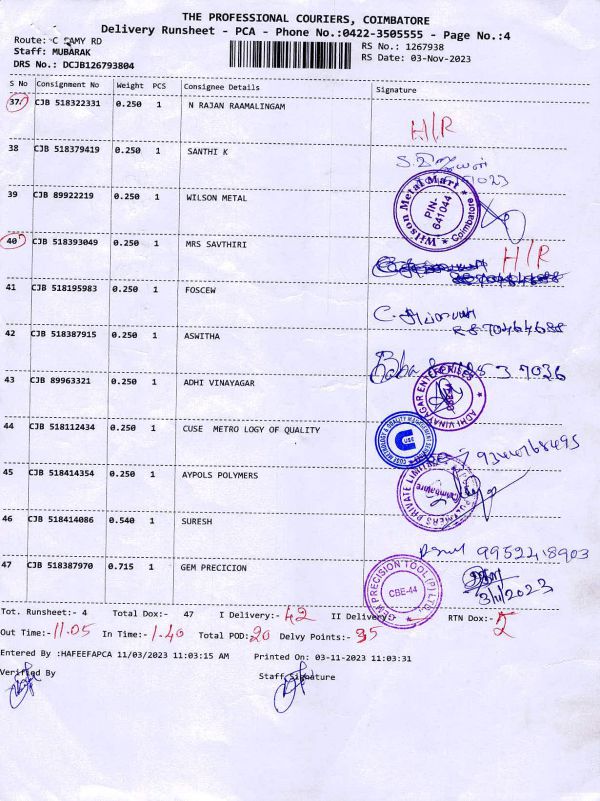 THE PROFESSIONAL COURIERS, COIMBATORE
Delivery Runsheet - PCA - Phone No.:0422-3505555 - Page No.:4
Route: C SAMY RD
Staff: MUBARAK
DRS No.: DCJB126793804
RS No.: 1267938
RS Date: 03-Nov-2023
S No Consignment No Weight PCS Consignee Details Signature
37 CJB 518322331 0.250 1 N RAJAN RAAMALINGAM
H/R
38 CJB 518379419 0.250 1 SANTHI K
39 CJB 89922219 0.250 1 WILSON METAL
Wilson Metal Mart
PIN-
641044
Coimbatore
40 CJB 518393049 0.250 1 MRS SAVTHIRI
H/R
41 CJB 518195983 0.250 1 FOSCEW
42 CJB 518387915 0.250 1 ASWITHA
43 CJB 89963321 0.250 1 ADHI VINAYAGAR
ADHI VINAYAGAR ENTERPRISES
44 CJB 518112434 0.250 1 CUSE METRO LOGY OF QUALITY
45 CJB 518414354 0.250 1 AYPOLS POLYMERS
POLYMERS PRIVATE LIMITED
Coimbatore
46 CJB 518414086 0.540 1 SURESH
9952418903
47 CJB 518387970 0.715 1 GEM PRECICION
GEM PRECISION TOOL (P) LTD.
CBE-44
3/11/2023
Tot. Runsheet:- 4 Total Dox:- 47 I Delivery:- 42 II Delivery:- RTN Dox:- 5
Out Time:- 11.05 In Time:- 1.40 Total POD: 20 Delvy Points:- 35
Entered By :HAFEEFAPCA 11/03/2023 11:03:15 AM Printed On: 03-11-2023 11:03:31
Verified By Staff Signature